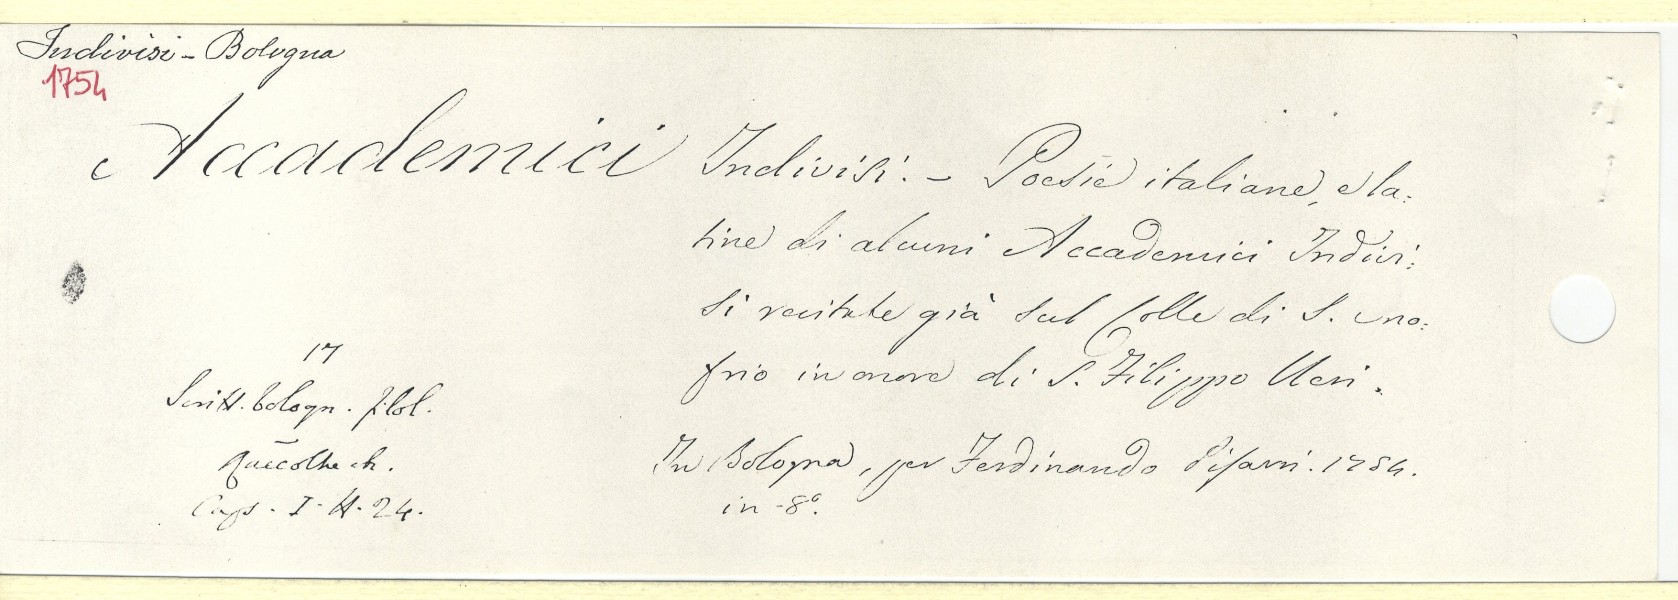 Indivisi - Bologna
1754
Accademici Indivisi. - Poesie italiane, e la:
tine di alcuni Accademici Indivi:
si recitate già sul Colle di S. Ono:
frio in onore di S. Filippo Neri.
17
Scritt. bologn. filol.
Raccolte ch.
Caps. I. H. 24.
In Bologna, per Ferdinando Pisarri. 1754.
in-8°.